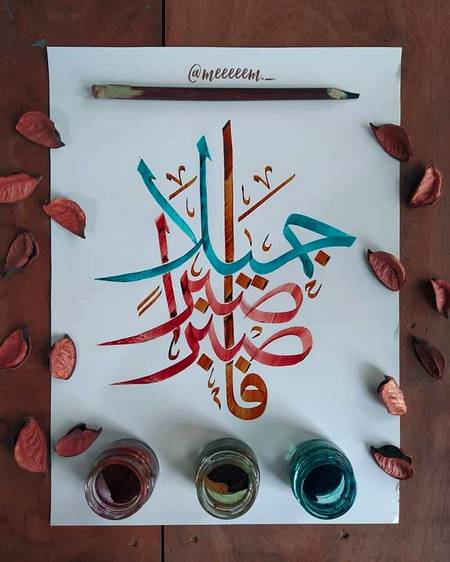 @meeeeem._
فاصبر
صبراً
جميلا